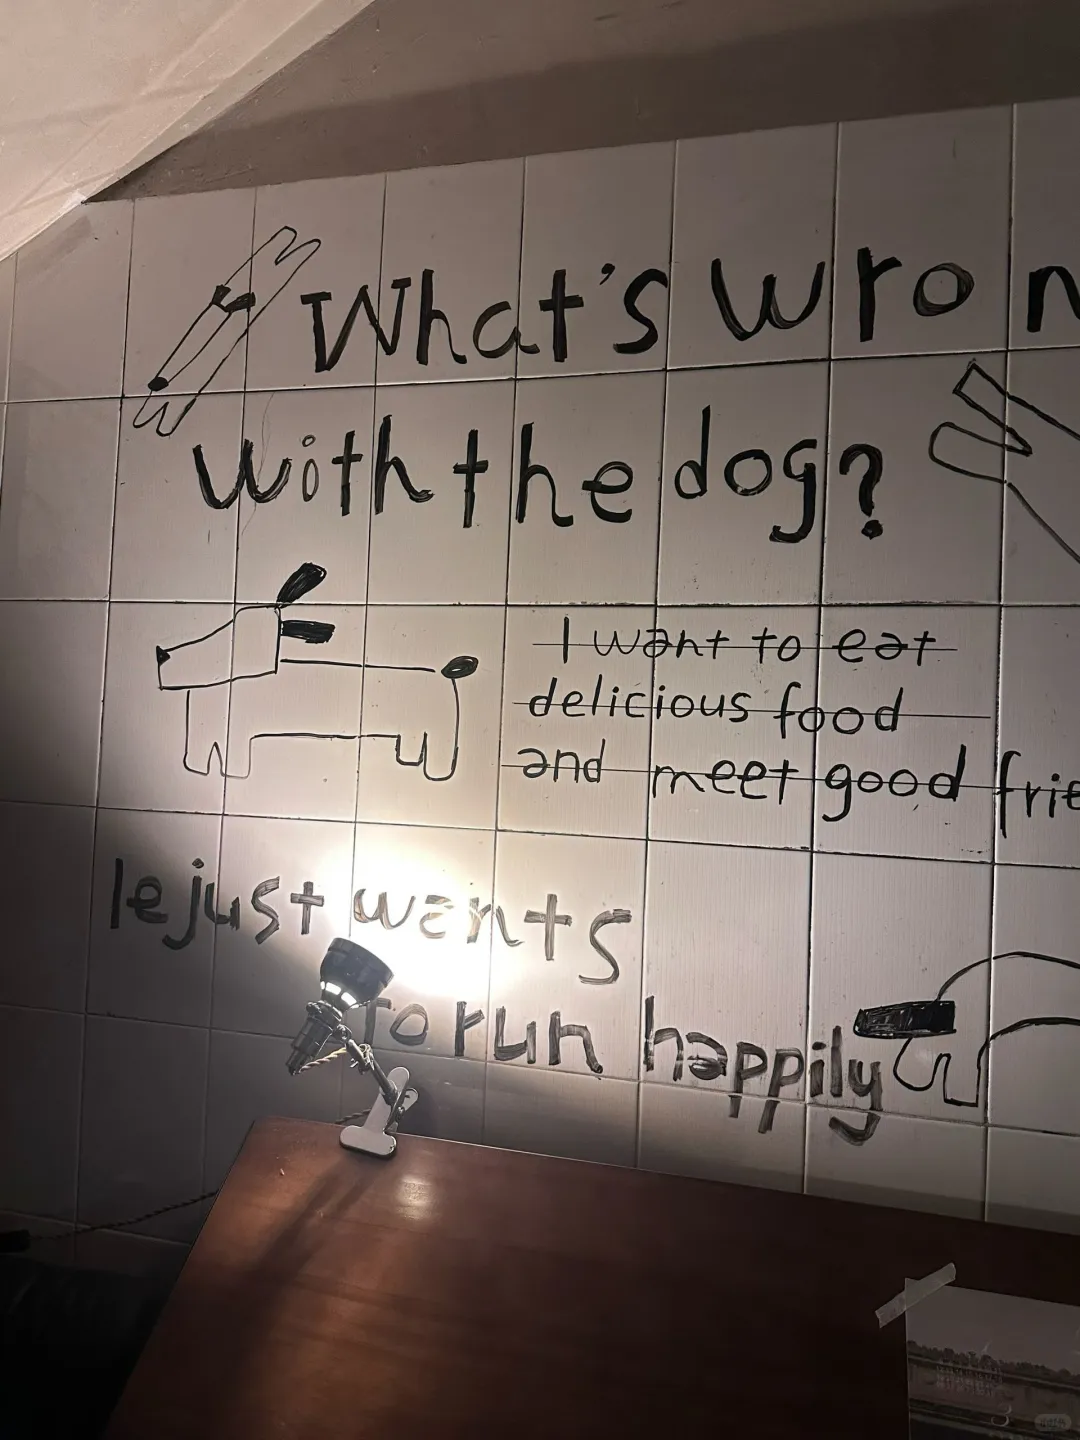 What's wron
with the dog?
I want to eat
delicious food
and meet good frie
le just wants
To run happily
3